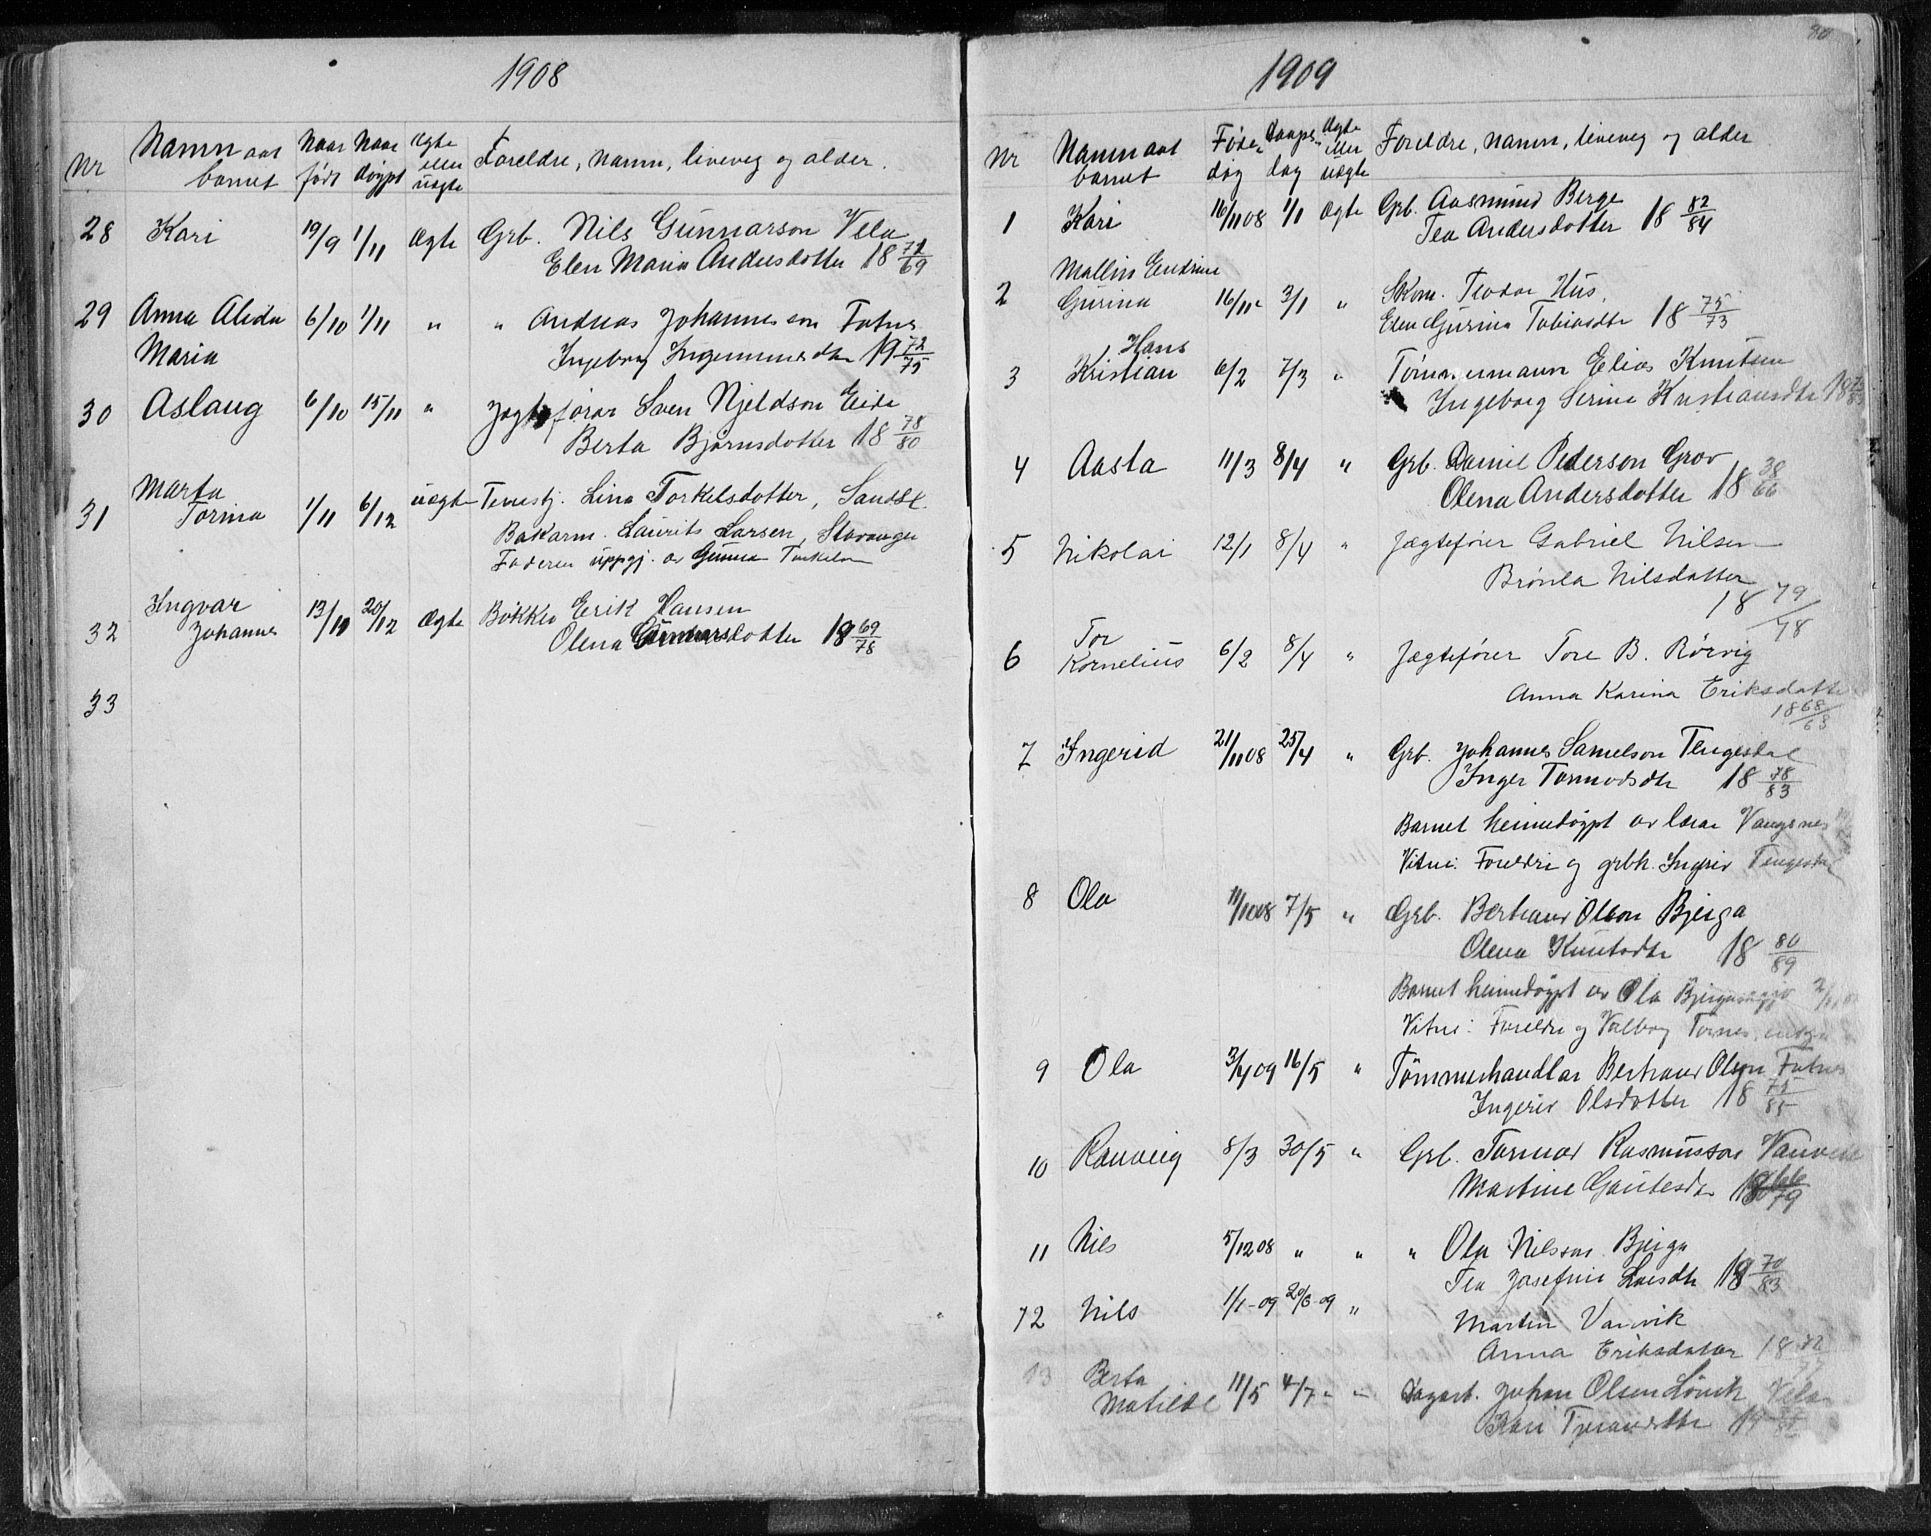 1908
Nr
Namn aat barnet
Naar født
Naar døypt
Ægte eller uægte
Foreldre, namn, liveveg og alder.
28 Kari 19/9 1/11 Ægte Grb. Nils Gunnarson Vela
Elen Maria Andersdotter 18 71/69
29 Anna Alida 6/10 1/11 " " Andreas Johannesson Fatnes
Maria Ingeborg Ingemunnsdtr 19 72/75
30 Aslaug 6/10 15/11 " Jægtsførar Sven Njeldson Eide
Berta Bjørnsdotter 18 78/80
Marta
31 Torina 1/11 6/12 uægte Tenestj. Lina Torkelsdotter, Sandse.
Bakarm. Laurits Larsen, Stavanger
Faderen uppgj. av Gunna Torkelsn
Ingvar
32 Johannes 13/10 20/12 Ægte Bøkker Erik Hansen
Olena Gunnarsdotter 18 69/78
33
80
1909
Nr
Namn aat barnet
Føde dag
Daaps dag
Ægte eller uægte
Foreldre, namn, liveveg og alder
1 Kari 16/11 08 1/1 Ægte Grb. Aasmund Berge
Tea Andersdotter 18 82/84
Mallin Endrine
2 Gurina 16/11 3/1 " Skom. Teodor Hus,
Elen Gurina Tobiasdtr 18 75/73
Hans
3 Kristian 6/2 7/3 " Tømmermann Elias Knutsen
Ingeborg Serine Kristiansdtr
4 Aasta 11/3 8/4 " Grb. Daniel Pederson Grov
Olena Andersdotter 18 38/66
5 Nikolai 12/1 8/4 " Jægtefører Gabriel Nilsen
Brønla Nilsdatter
18 79/78
Tor
6 Kornelius 6/2 8/4 " Jægtefører Tore B. Rørvig
Anna Karina Eriksdatter
18 68/63
7 Ingerid 21/11 08 25/4 " Grb. Johannes Samelson Tengesdal
Inger Tormodsdtr 18 78/83
Barnet heimedøypt av lærar Vangsnes
Vitne: Foreldre og grbk. Ingrid Tengesdal
8 Ola 11/10 08 7/5 " Grb. Bertrand Olson Bjerga
Olena Knutsdtr 18 80/89
Barnet heimedøypt av Ola
Vitne: Foreldre og Valborg
9 Ola 3/4 09 16/5 " Tømmerhandlar Bertrand Olson Fatnes
Ingerid Olsdotter 18 75/85
10 Ranveig 8/3 30/5 " Grb. Tormod Rasmusson Vanvik
Martine Gautesdtr 18 66/79
11 Nils 5/12 08 " " " Ola Nilsson Bjerga
Tea Josefine Larsdtr 18 70/83
12 Nils 1/1-09 20/6-09 " Martin Vanvik
Anna Eriksdatter 18 72/77
13 Berta
Matilde 11/5 4/7 - - Dagarb. Johan Olsen Løvik Vela
Kari